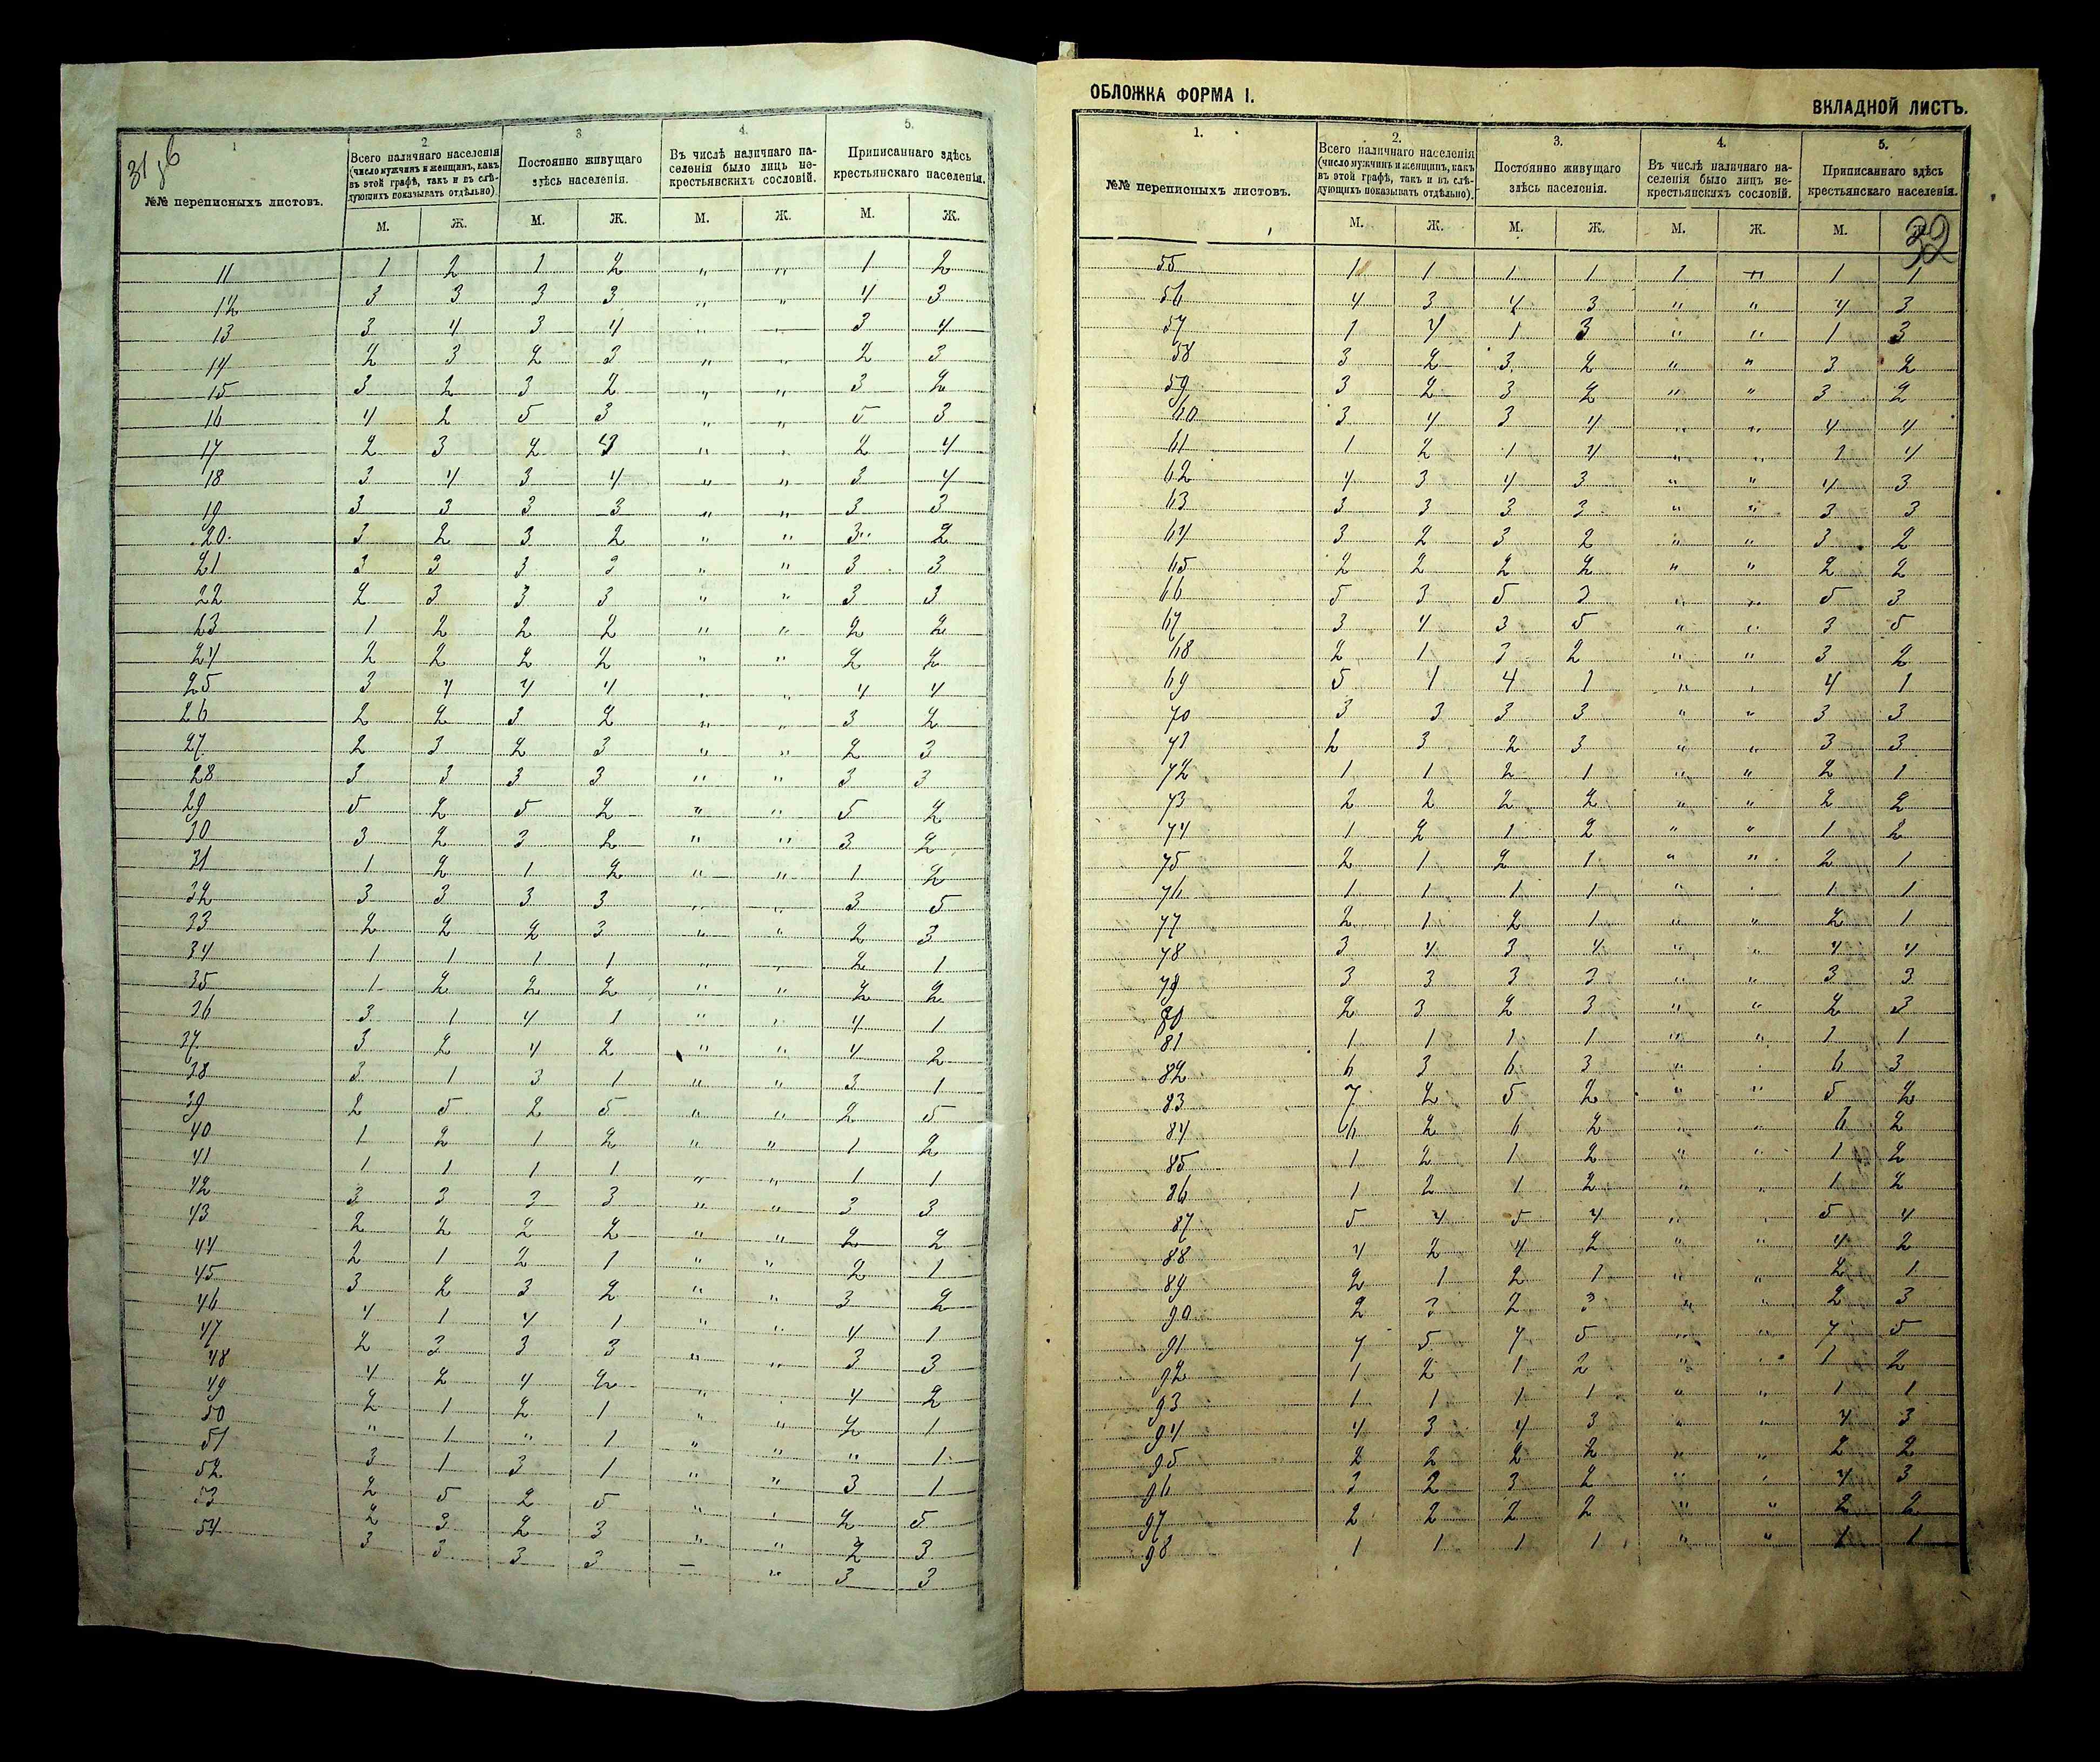 31 об
1
2.
3
4.
5.
№№ переписныхъ листовъ.
Всего наличнаго населенія
(число мужчинъ и женщинъ, какъ
въ этой графѣ, такъ и въ слѣ-
дующихъ показывать отдѣльно).
Постоянно живущаго
здѣсь населенія.
Въ числѣ наличнаго на-
селенія было лицъ не-
крестьянскихъ сословій.
Приписаннаго здѣсь
крестьянскаго населенія.
М. Ж. М. Ж. М. Ж. М. Ж.
11 1 2 1 2 " " 1 2
12 3 3 3 3 " " 4 3
13 3 4 3 4 " " 3 4
14 2 3 2 3 " " 2 3
15 3 2 3 2 " " 3 2
16 4 2 5 3 " " 5 3
17 2 3 2 3 " " 2 4
18 3 4 3 4 " " 3 4
19 3 3 3 3 " " 3 3
20. 3 2 3 2 " " 3 2
21 3 3 3 3 " " 3 3
22 2 3 3 3 " " 3 3
23 1 2 2 2 " " 2 2
24 2 2 2 2 " " 2 2
25 3 4 4 4 " " 4 4
26 2 2 3 2 " " 3 2
27 2 3 2 3 " " 2 3
28 3 3 3 3 " " 3 3
29 5 2 5 2 " " 5 2
30 3 2 3 2 " " 3 2
31 1 2 1 2 " " 1 2
32 3 3 3 3 " " 3 5
33 2 2 2 3 " " 2 3
34 1 1 1 1 " " 2 1
35 1 2 2 2 " " 2 2
36 3 1 4 1 " " 4 1
37 3 2 4 2 " " 4 2
38 3 1 3 1 " " 3 1
39 2 5 2 5 " " 2 5
40 1 2 1 2 " " 1 2
41 1 1 1 1 " " 1 1
42 3 3 3 3 " " 3 3
43 2 2 2 2 " " 2 2
44 2 1 2 1 " " 2 1
45 3 2 3 2 " " 3 2
46 4 1 4 1 " " 4 1
47 2 3 3 3 " " 3 3
48 4 2 4 2 " " 4 2
49 2 1 2 1 " " 2 1
50 " 1 " 1 " " " 1
51 3 1 3 1 " " 3 1
52 2 5 2 5 " " 2 5
53 2 3 2 3 " " 2 3
54 3 3 3 3 — " 3 3
ОБЛОЖКА ФОРМА I.
ВКЛАДНОЙ ЛИСТЪ.
1.
2.
3.
4.
5.
№№ переписныхъ листовъ.
Всего наличнаго населенія
(число мужчинъ и женщинъ, какъ
въ этой графѣ, такъ и въ слѣ-
дующихъ показывать отдѣльно).
Постоянно живущаго
здѣсь населенія.
Въ числѣ наличнаго на-
селенія было лицъ не-
крестьянскихъ сословій.
Приписаннаго здѣсь
крестьянскаго населенія.
М. Ж. М. Ж. М. Ж. М. Ж.
32
55 1 1 1 1 1 " 1 1
56 4 3 4 3 " " 4 3
57 1 4 1 3 " " 1 3
58 3 2 3 2 " " 3 2
59 3 2 3 2 " " 3 2
60 3 4 3 4 " " 4 4
61 1 2 1 4 " " 1 4
62 4 3 4 3 " " 4 3
63 3 3 3 3 " " 3 3
64 3 2 3 2 " " 3 2
65 2 2 2 2 " " 2 2
66 5 3 5 3 " " 5 3
67 3 4 3 5 " " 3 5
68 2 1 3 2 " " 3 2
69 5 1 4 1 " " 4 1
70 3 3 3 3 " " 3 3
71 2 3 2 3 " " 3 3
72 1 1 2 1 " " 2 1
73 2 2 2 2 " " 2 2
74 1 2 1 2 " " 1 2
75 2 1 2 1 " " 2 1
76 1 1 1 1 " " 1 1
77 2 1 2 1 " " 2 1
78 3 4 3 4 " " 4 4
79 3 3 3 3 " " 3 3
80 2 3 2 3 " " 2 3
81 1 1 1 1 " " 1 1
82 6 3 6 3 " " 6 3
83 7 2 5 2 " " 5 2
84 6 2 6 2 " " 6 2
85 1 2 1 2 " " 1 2
86 1 2 1 2 " " 1 2
87 5 4 5 4 " " 5 4
88 4 2 4 2 " " 4 2
89 2 1 2 1 " " 2 1
90 2 3 2 3 " " 2 3
91 4 5 4 5 " " 4 5
92 1 2 1 2 " " 1 2
93 1 1 1 1 " " 1 1
94 4 3 4 3 " " 4 3
95 2 2 2 2 " " 2 2
96 3 2 3 2 " " 4 3
97 2 2 2 2 " " 2 2
98 1 1 1 1 " " 1 1